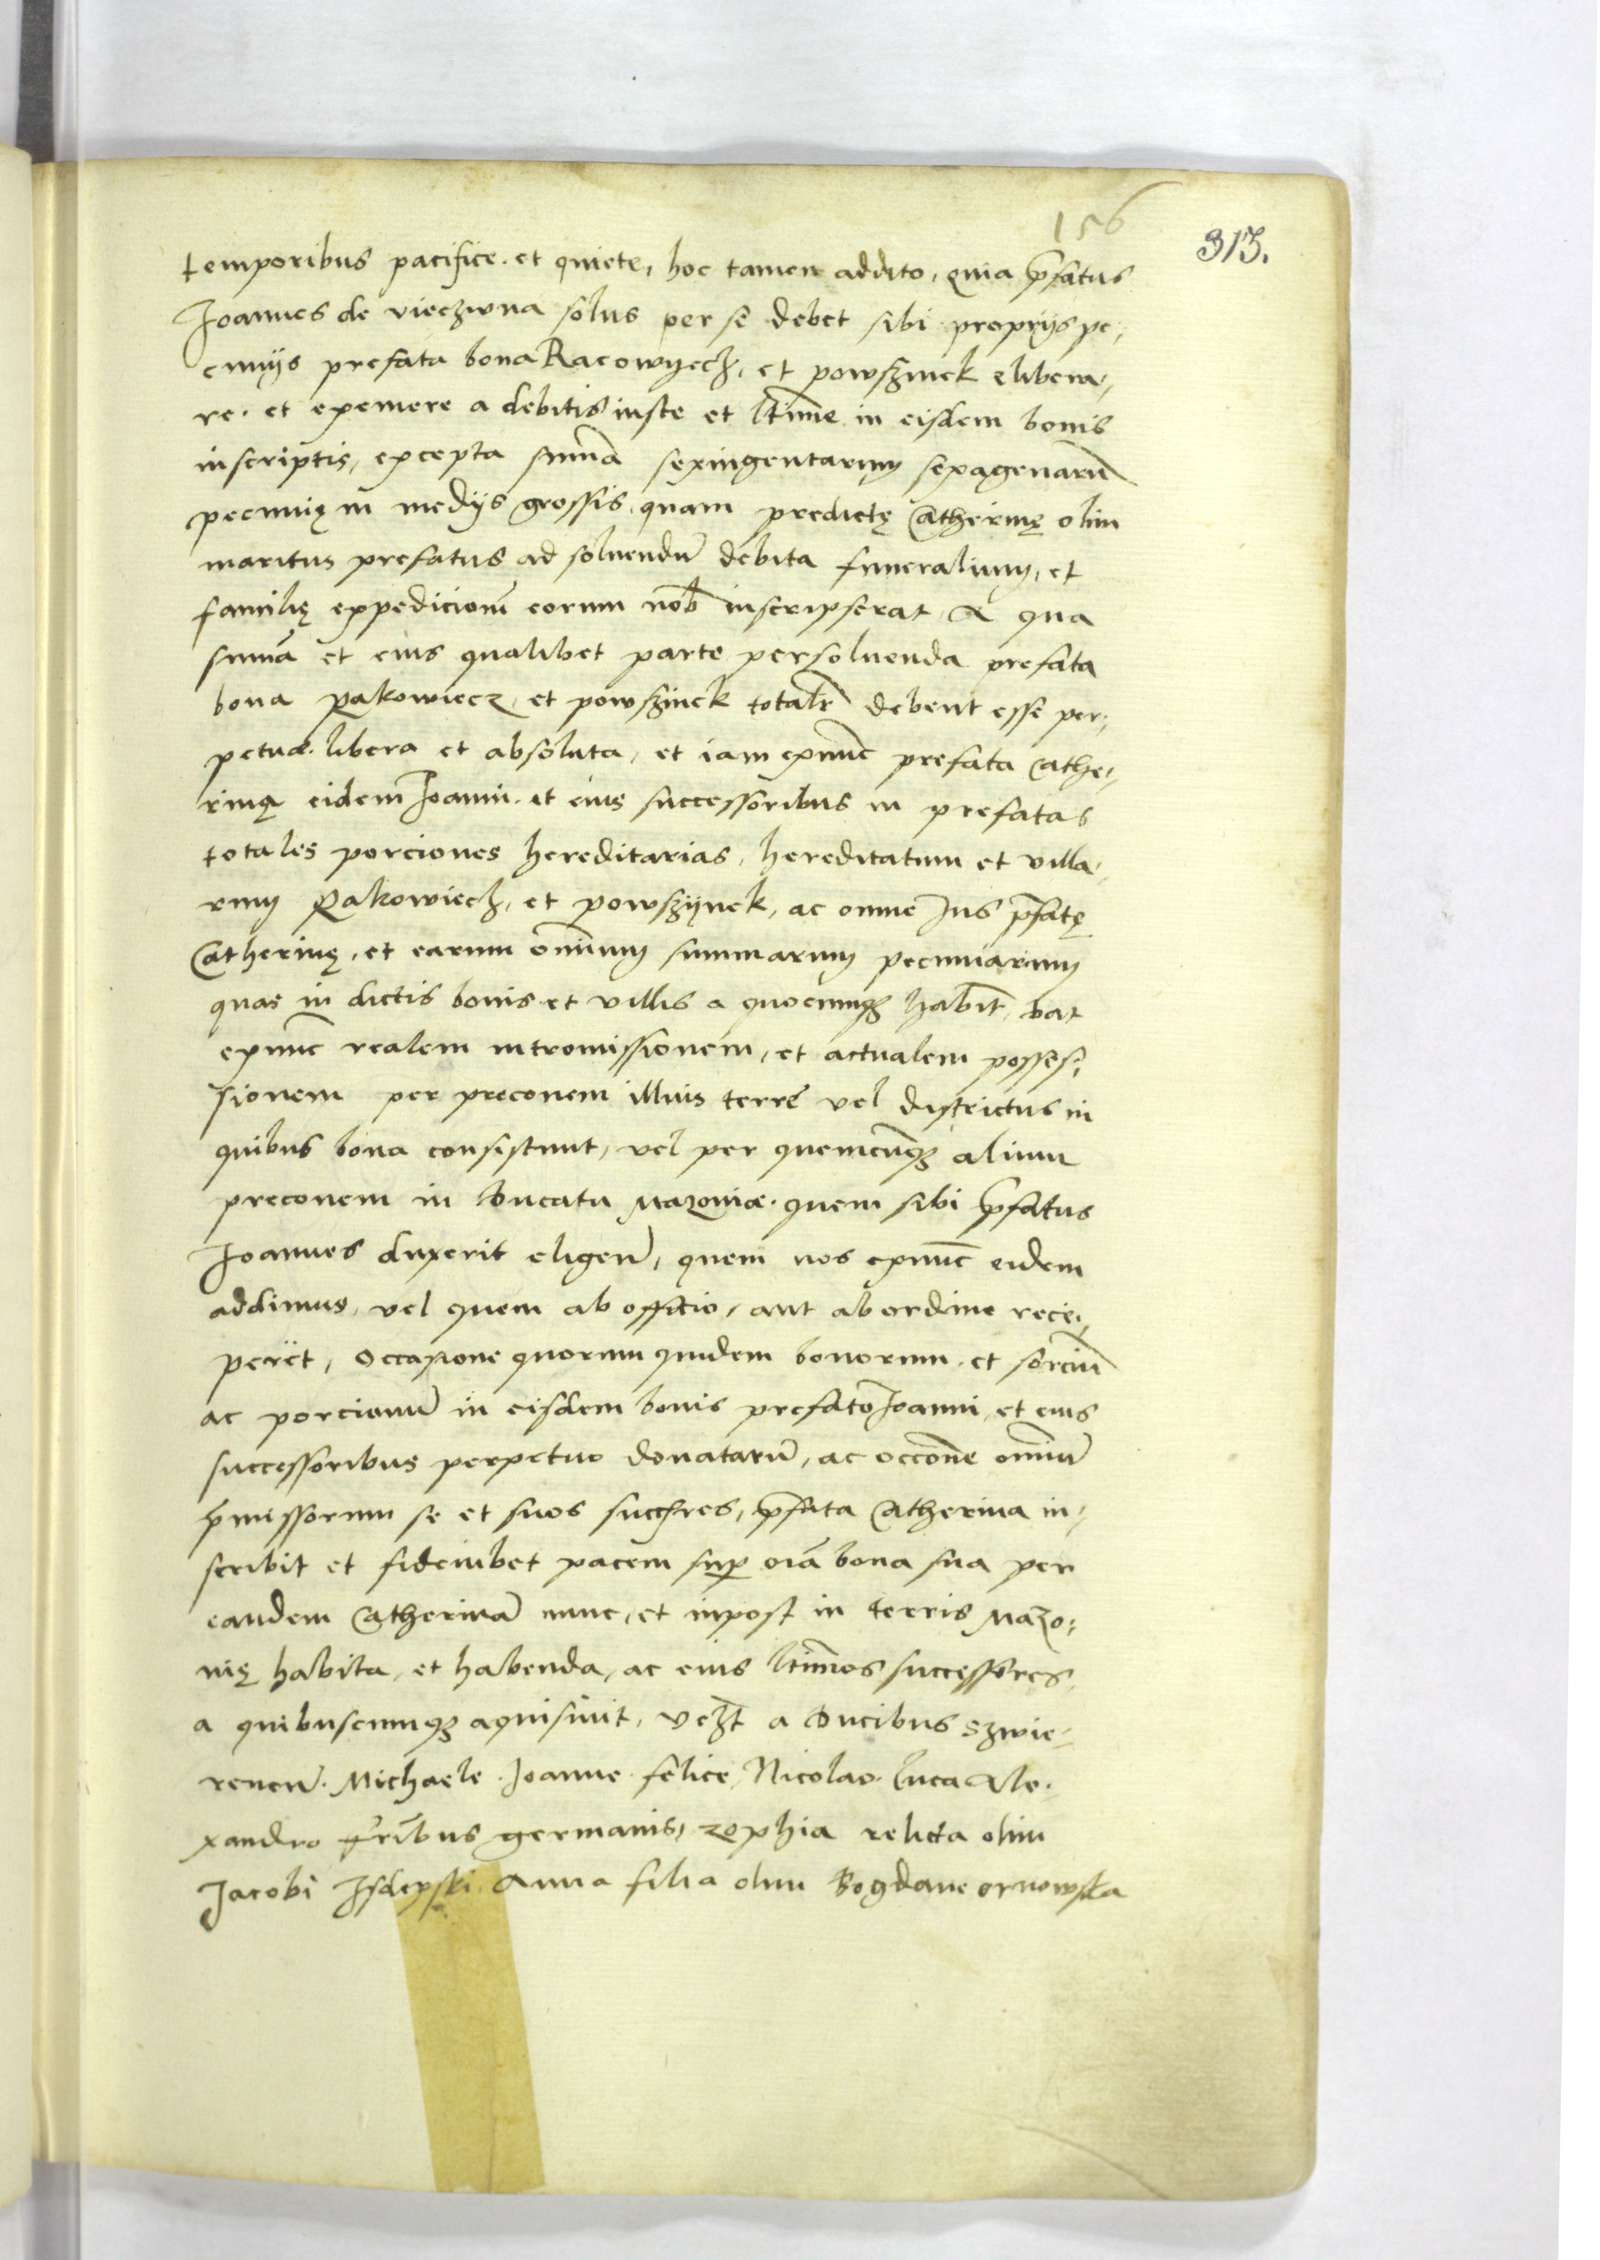 156
313.
temporibus pacifice et quiete, hoc tamen addito, quia p̄fatus
Joannes de vieczwna solus per se debet sibi proprijs pe-
cunijs prefata bona Racowyecz, et powszinek elibera-
re et exemere a debitis iuste et l̄time in eisdem bonis
inscriptis, excepta sum̄a sexingentarum sexagenarū
pecunię in medijs grossis, quam predictę Catherinę olim
maritus prefatus ad soluendū debita funeralium, et
familię expedicionē eorum nob̄ inscripserat, A qua
sum̄a et eius qualibet parte persoluenda prefata
bona Rakowiecz, et powszinek totalr̄ debent esse per-
petuæ libera et absoluta, et iam exnūc prefata Cathe-
rina eidem Joanni et eius successoribus in prefatas
totales porciones hereditarias, hereditatum et villa-
rum Rakowiecz, et powszijnek, ac omne Jus p̄fatę
Catherinę, et earum om̄ium summarum pecuniarum
quas in dictis bonis et villis a quocunqȝ habūt, dat
exnūc realem intromissionem, et actualem posses-
sionem per preconem illius terre vel districtus in
quibus bona consistunt, vel per quemcūqȝ alium
preconem in Ducatu Mazouiæ quem sibi p̄fatus
Joannes duxerit eligen̄, quem nos exnūc eidem
addimus, vel quem ab officio, aut ab ordine rece-
perit, Occasione quorum quidem bonorum et sorciū
ac porcionū in eisdem bonis prefato Joanni, et eius
successoribus perpetuo donatarū, ac occ̄one om̄iū
p̄missorum se et suos succ̄res, p̄fata Catherina in-
scribit et fideiubet pacem sup̄ oīa bona sua per
eandem Catherinā nunc, et inpost in terris Mazo-
uię habita, et habenda, ac eius l̄timos successores,
a quibuscumqȝ aquisiuit, vcz̄t a Ducibus Szwie-
rencū Michaele Joanne felice, Nicolao Luca Ale-
xandro fr̄ibus germanis, zophia relicta olim
Jacobi Isdepski Anna filia olim Bogdane ornowska